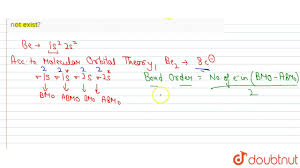 not exist?
Be → 1s² 2s²
Acc to Molecular Orbital Theory, Be₂ → 8e⊖
σ1s² σ*1s² σ2s² σ*2s²
BMO ABMO BMO ABMO
Bond Order = No of e⁻ in (BMO - ABMO)
2
doubtnut